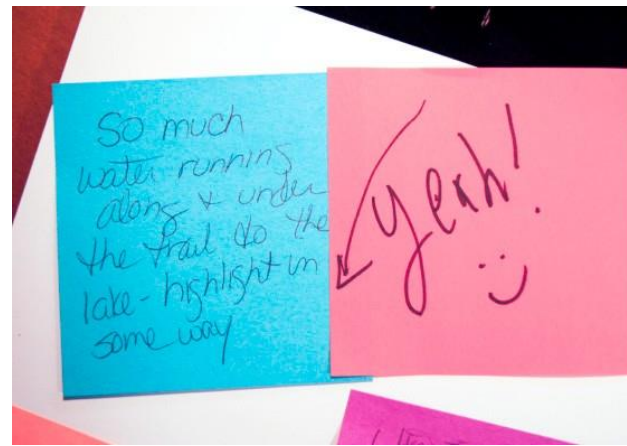 So much
water running
along & under
the trail to the
lake - highlight in
some way
Yeah!